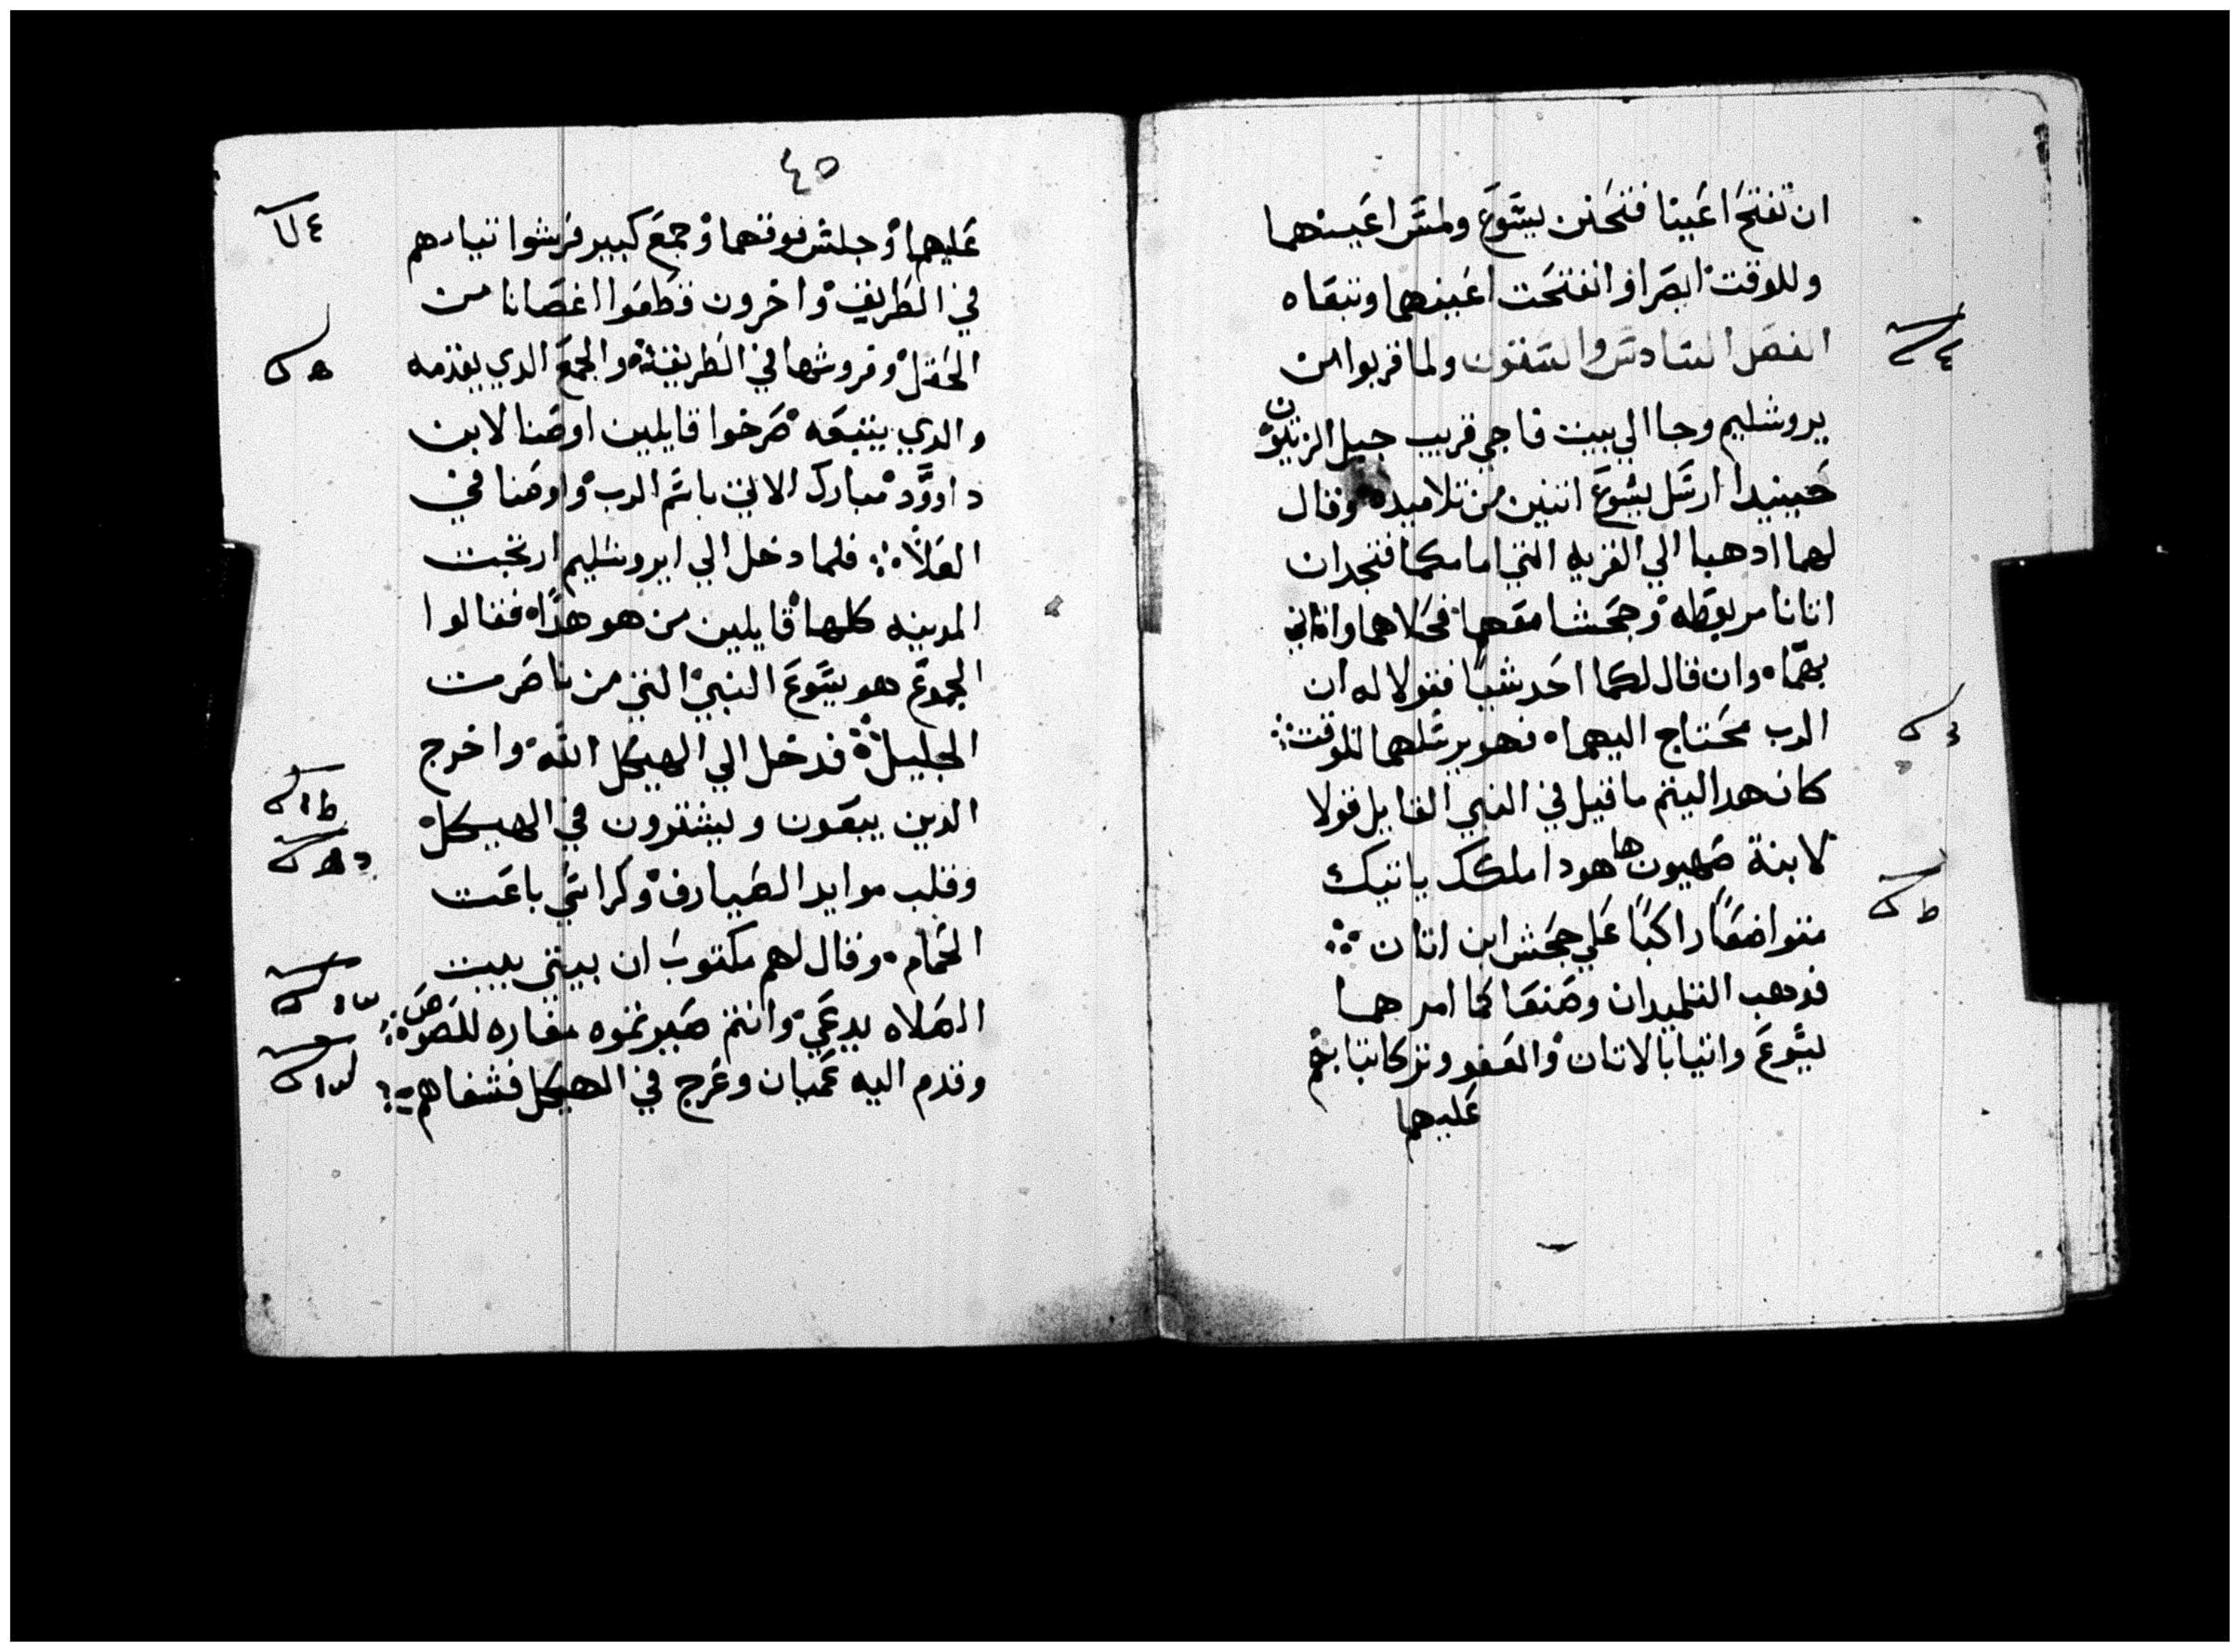 ان تفتح اعيننا فتحنن يسوع ولمس اعينهما
وللوقت ابصرا وانفتحت اعينهما وتبعاه
الفصل السادس والستون ولما قربوا من
يروشليم وجا الي بيت فاجي قريب جبل الزيتون
حينيدا ارسل يسوع اتنين من تلاميده وقال
لهما ادهبا الي القريه التي امامكما فتجدان
اتانا مربوطه وجحشا معها فحلاهما واتياني
بهما وان قال لكما احد شيا فقولا له ان
الرب محتاج اليهما فهو يرسلهما للوقت
كان هدا ليتم ما قيل في النبي القايل قولا
لابنة صهيون ها هودا ملكك ياتيك
متواضعا راكبا علي جحش ابن اتان
فدهب التلميدان وصنعا كما امرهما
يسوع واتيا بالاتان والعفو وتركا تيابهم
عليهما
٤٥
عليهما وجلس فوقهما وجمع كبير فرشوا تيابهم
في الطريق واخرون قطعوا اغصانا من
الحقل وفروشها في الطريق والجمع الدي يقدمه
والدي يتبعه صرخوا قايلين اوصنا لابن
داوود مبارك الاتي باسم الرب واوصنا في
العلا فلما دخل الي ايروشليم ارتجت
المدينه كلها قايلين من هو هدا فقالوا
الجموع هو يسوع النبي التي من ناصرت
الجليل فدخل الي الهيكل الله واخرج
الدين يبعون ويشترون في الهيكل
وقلب موايد الصيارف وكراسي باعت
الحمام وقال لهم مكتوب ان بيتي بيت
الصلاه يدعي وانتم صيرتموه مغاره للصوص
وقدم اليه عميان وعرج في الهيكل فشفاهم